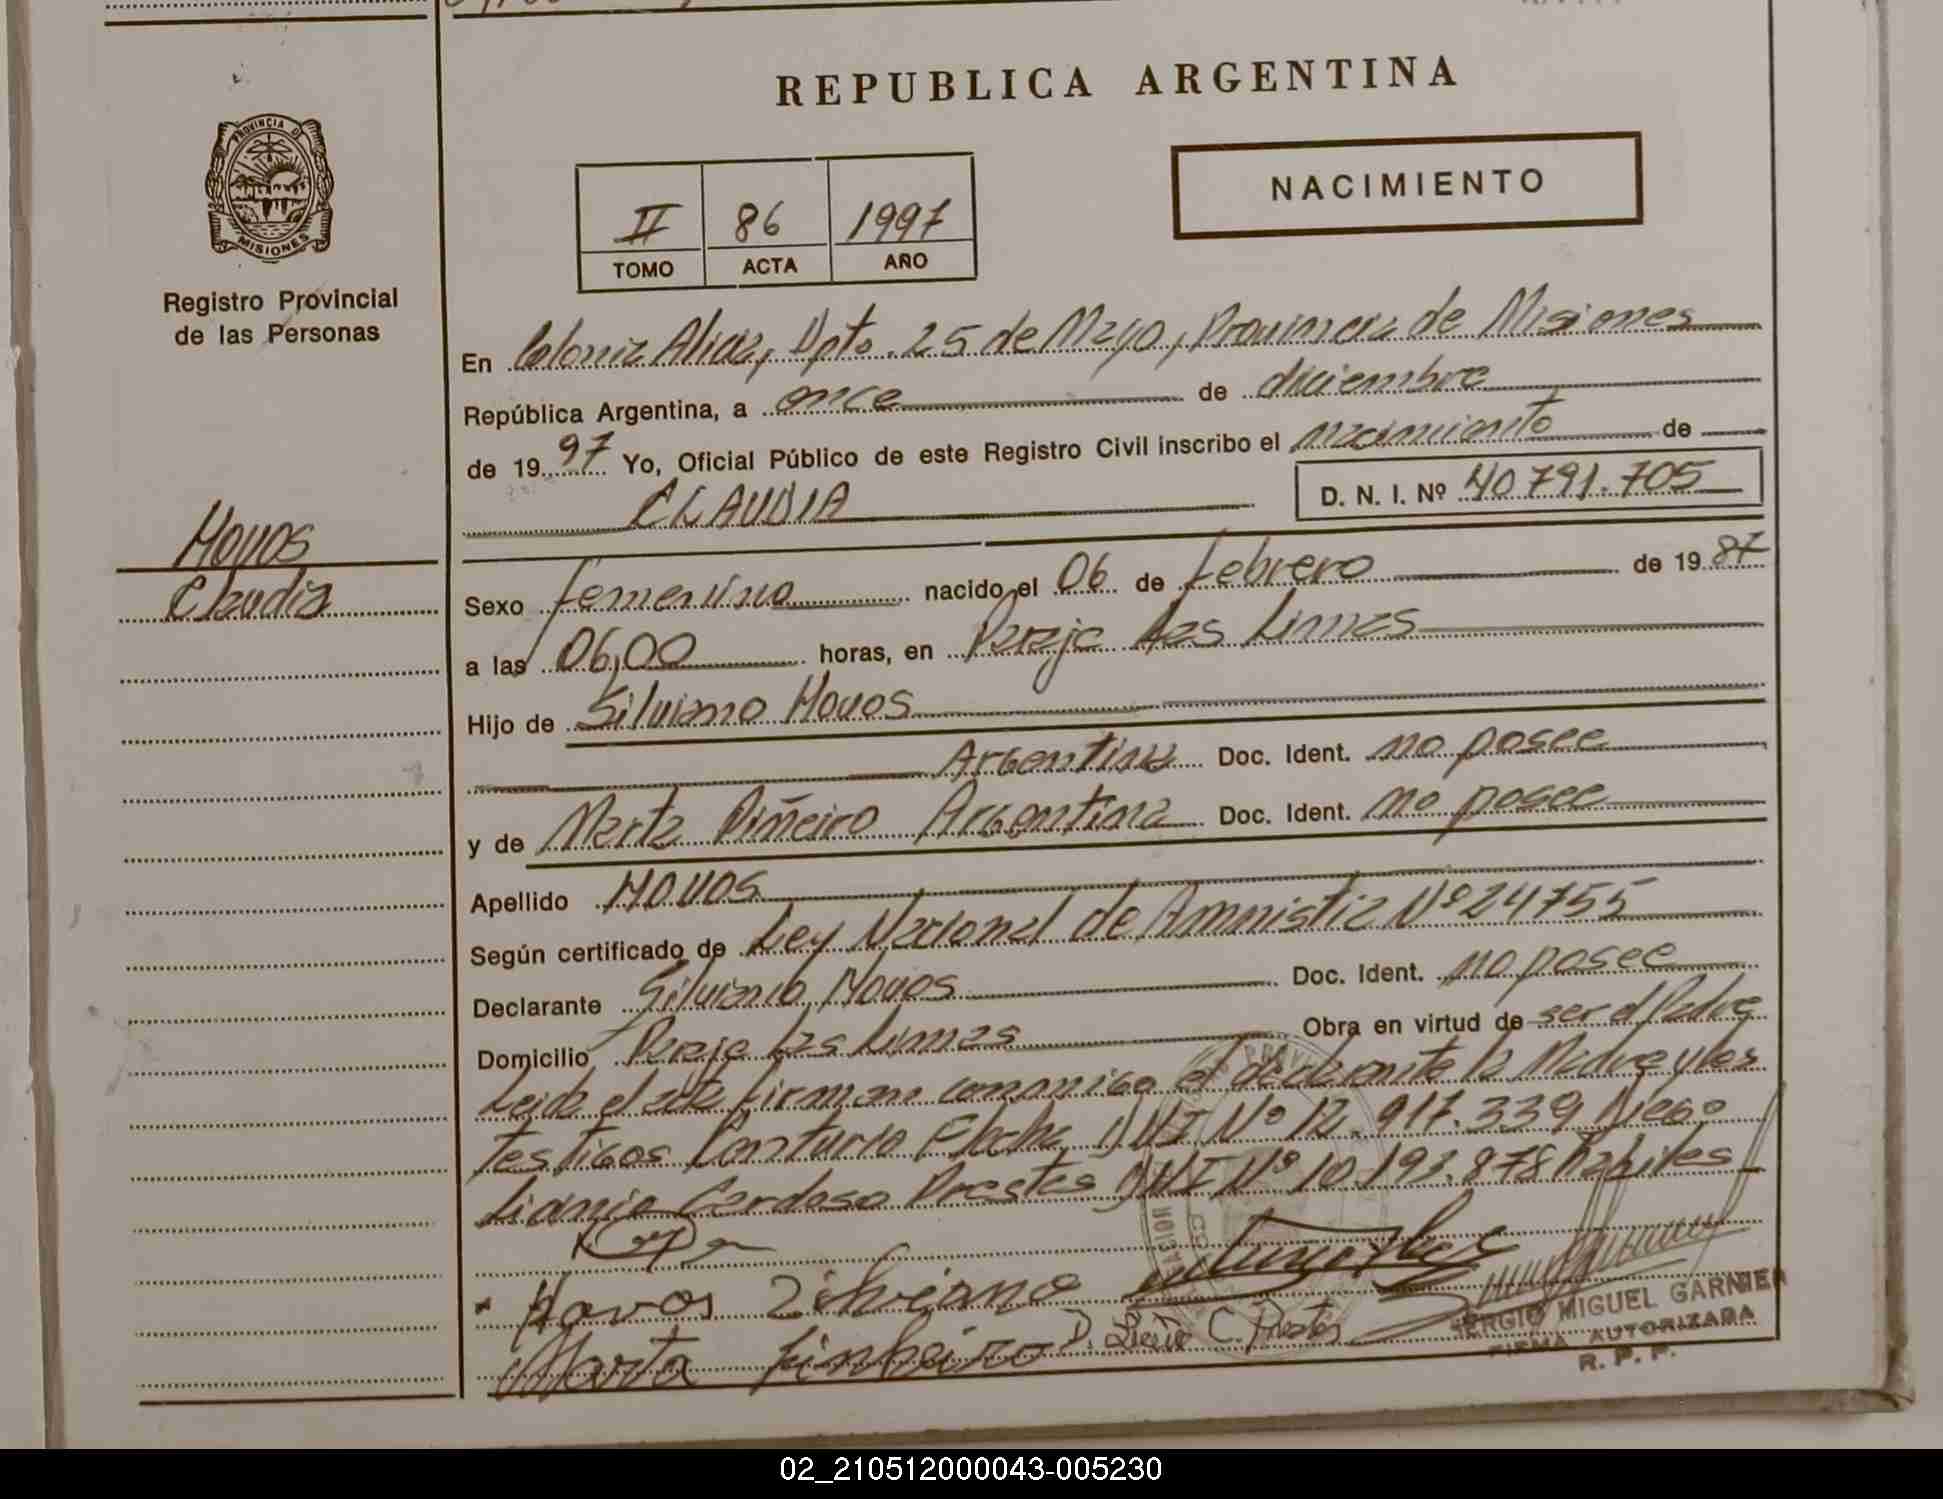 REPUBLICA ARGENTINA
PROVINCIA D
MISIONES
Registro Provincial
de las Personas
NACIMIENTO
II 86 1997
TOMO ACTA AÑO
En Colonia Alicia, Dpto. 25 de Mayo, Provincia de Misiones
República Argentina, a once de diciembre
de 19 97 Yo, Oficial Público de este Registro Civil inscribo el nacimiento de
CLAUDIA D. N. I. Nº 40791.705
Hovos
Claudia
Sexo femenino nacido el 06 de febrero de 19 87
a las 06,00 horas, en Paraje Las Limas
Hijo de Silviano Hovos
Argentina Doc. Ident. no posee
y de Marta Piñeiro Argentina Doc. Ident. no posee
Apellido HOVOS
Según certificado de Ley Nacional de Amnistia Nº 24755
Declarante Silviano Hovos Doc. Ident. no posee
Domicilio Paraje Las Limas Obra en virtud de ser el Padre
Leida el acta firman conmigo el declarante la Madre y los
testigos DNI Nº 12.917.339 Diego
Cardoso Prestes DNI Nº 10.193.878 habiles
Hovos Zilviano
Marta Pinheiro D. C. Prestes
SERGIO MIGUEL GARNIER
FIRMA AUTORIZADA
R. P. P.
02_210512000043-005230